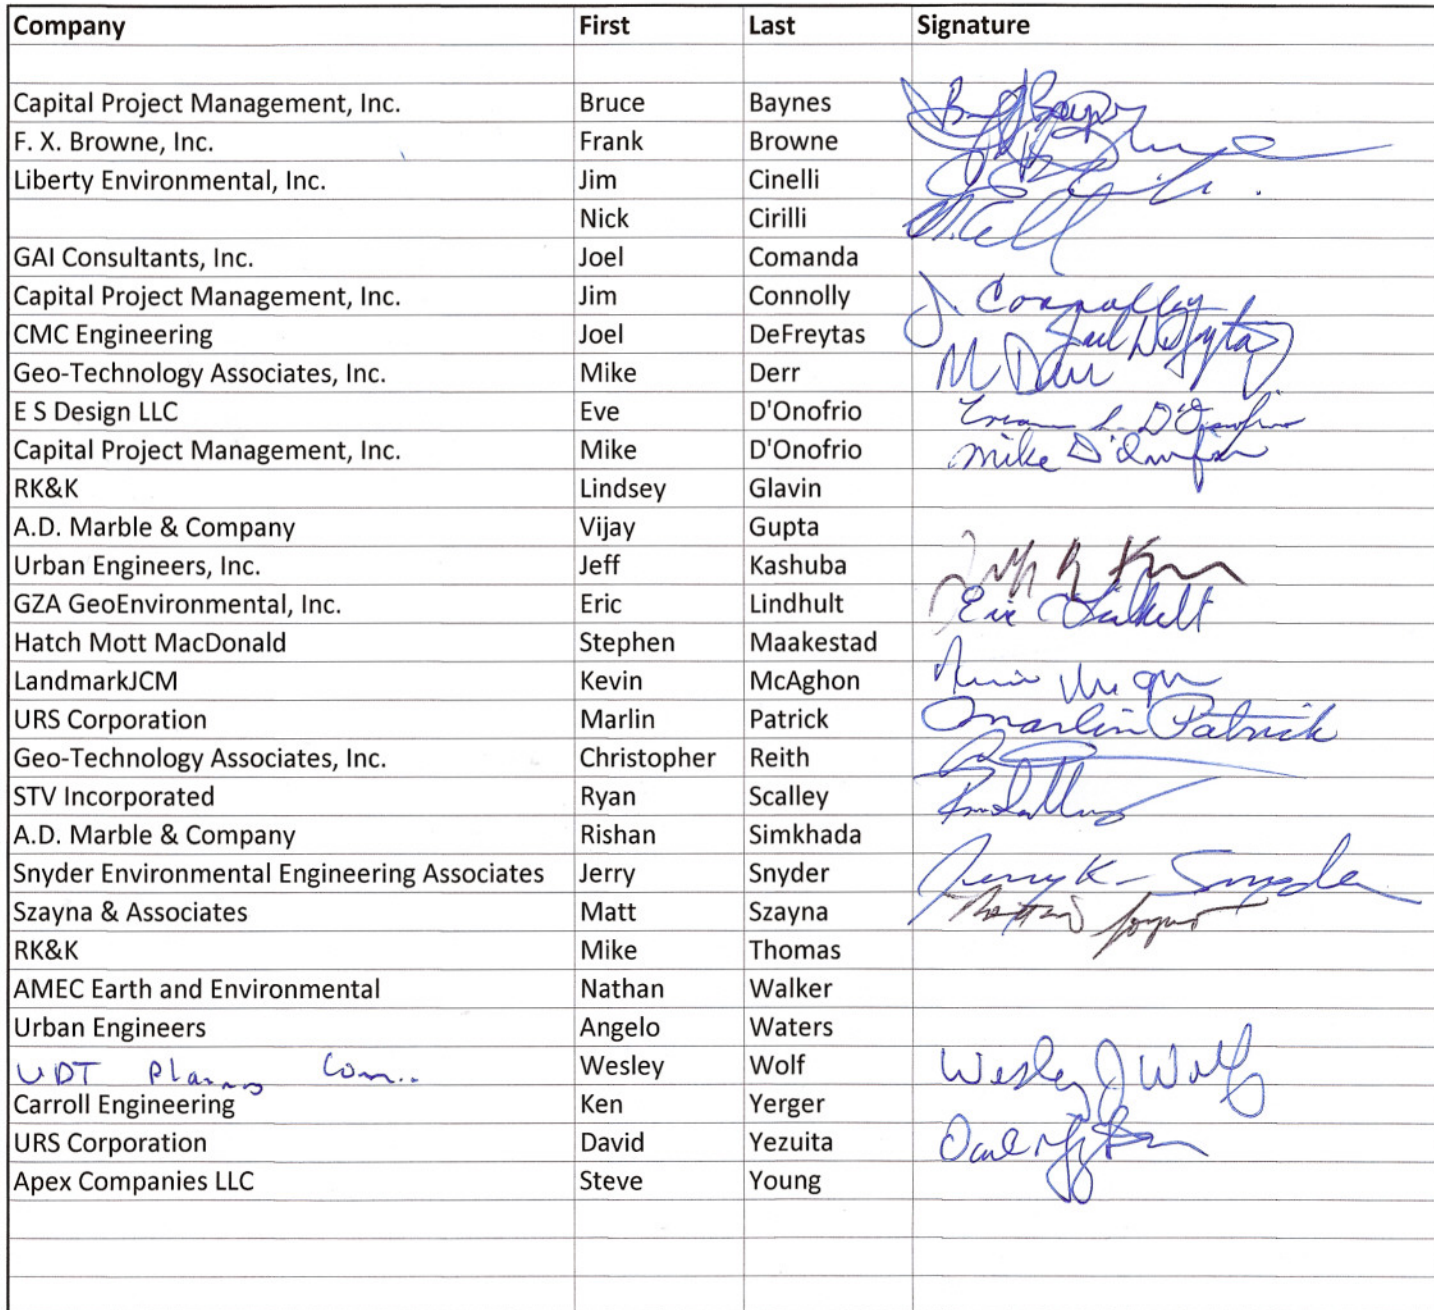 Company First Last Signature
Capital Project Management, Inc. Bruce Baynes
F. X. Browne, Inc. Frank Browne
Liberty Environmental, Inc. Jim Cinelli
Nick Cirilli
GAI Consultants, Inc. Joel Comanda
Capital Project Management, Inc. Jim Connolly J. Connolly
CMC Engineering Joel DeFreytas
Geo-Technology Associates, Inc. Mike Derr
E S Design LLC Eve D'Onofrio
Capital Project Management, Inc. Mike D'Onofrio Mike D'Onofrio
RK&K Lindsey Glavin
A.D. Marble & Company Vijay Gupta
Urban Engineers, Inc. Jeff Kashuba
GZA GeoEnvironmental, Inc. Eric Lindhult Eric Lindhult
Hatch Mott MacDonald Stephen Maakestad
LandmarkJCM Kevin McAghon
URS Corporation Marlin Patrick Marlin Patrick
Geo-Technology Associates, Inc. Christopher Reith
STV Incorporated Ryan Scalley
A.D. Marble & Company Rishan Simkhada
Snyder Environmental Engineering Associates Jerry Snyder Jerry K. Snyder
Szayna & Associates Matt Szayna
RK&K Mike Thomas
AMEC Earth and Environmental Nathan Walker
Urban Engineers Angelo Waters
UDT Wesley Wolf Wesley J Wolf
Carroll Engineering Ken Yerger
URS Corporation David Yezuita
Apex Companies LLC Steve Young